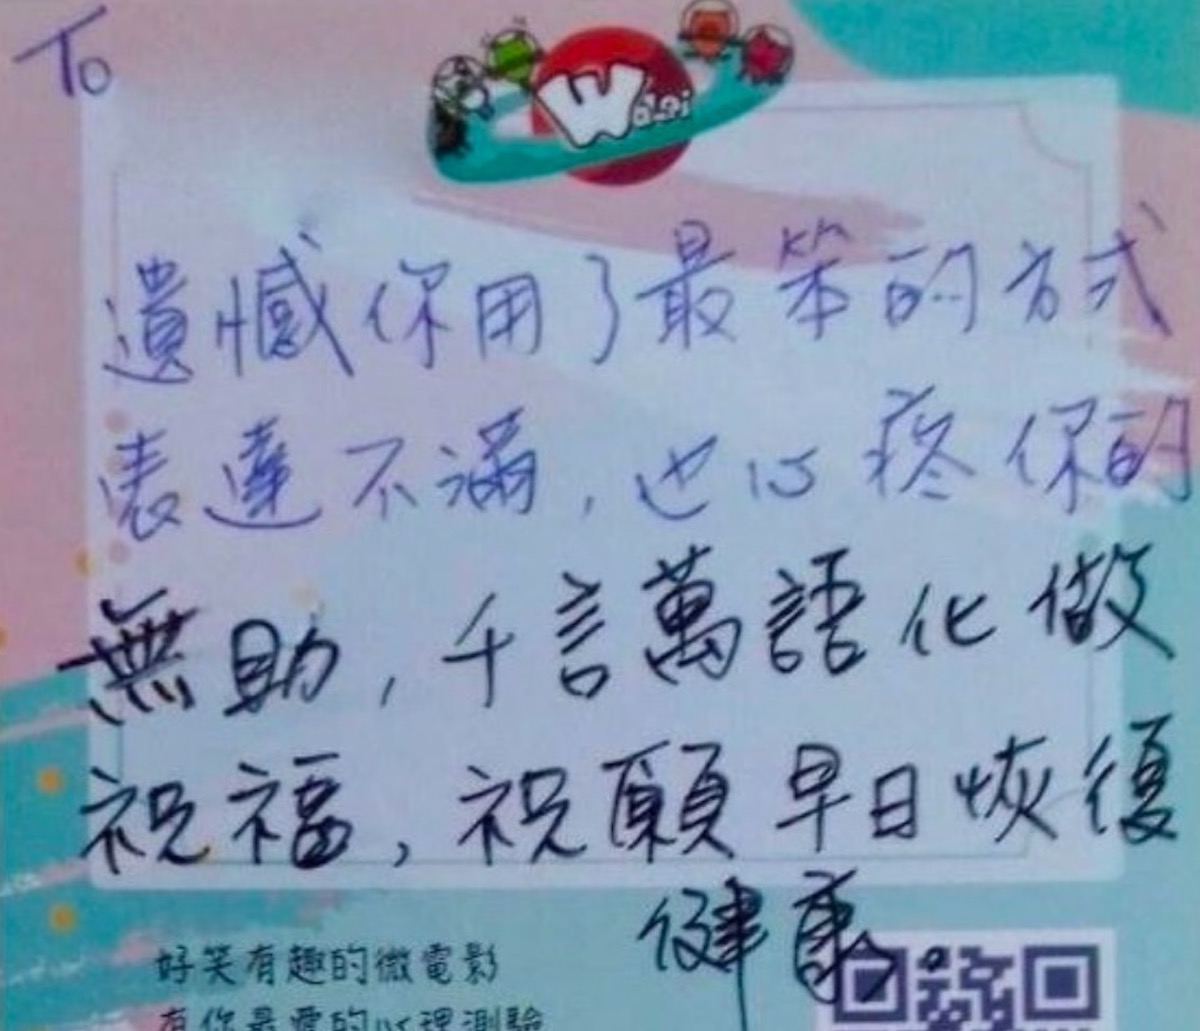 To
Waei
遺憾你用了最笨的方式
表達不滿，也心疼你的
無助，千言萬語化做
祝福，祝願早日恢復
健康。
好笑有趣的微電影
有你最愛的心理測驗